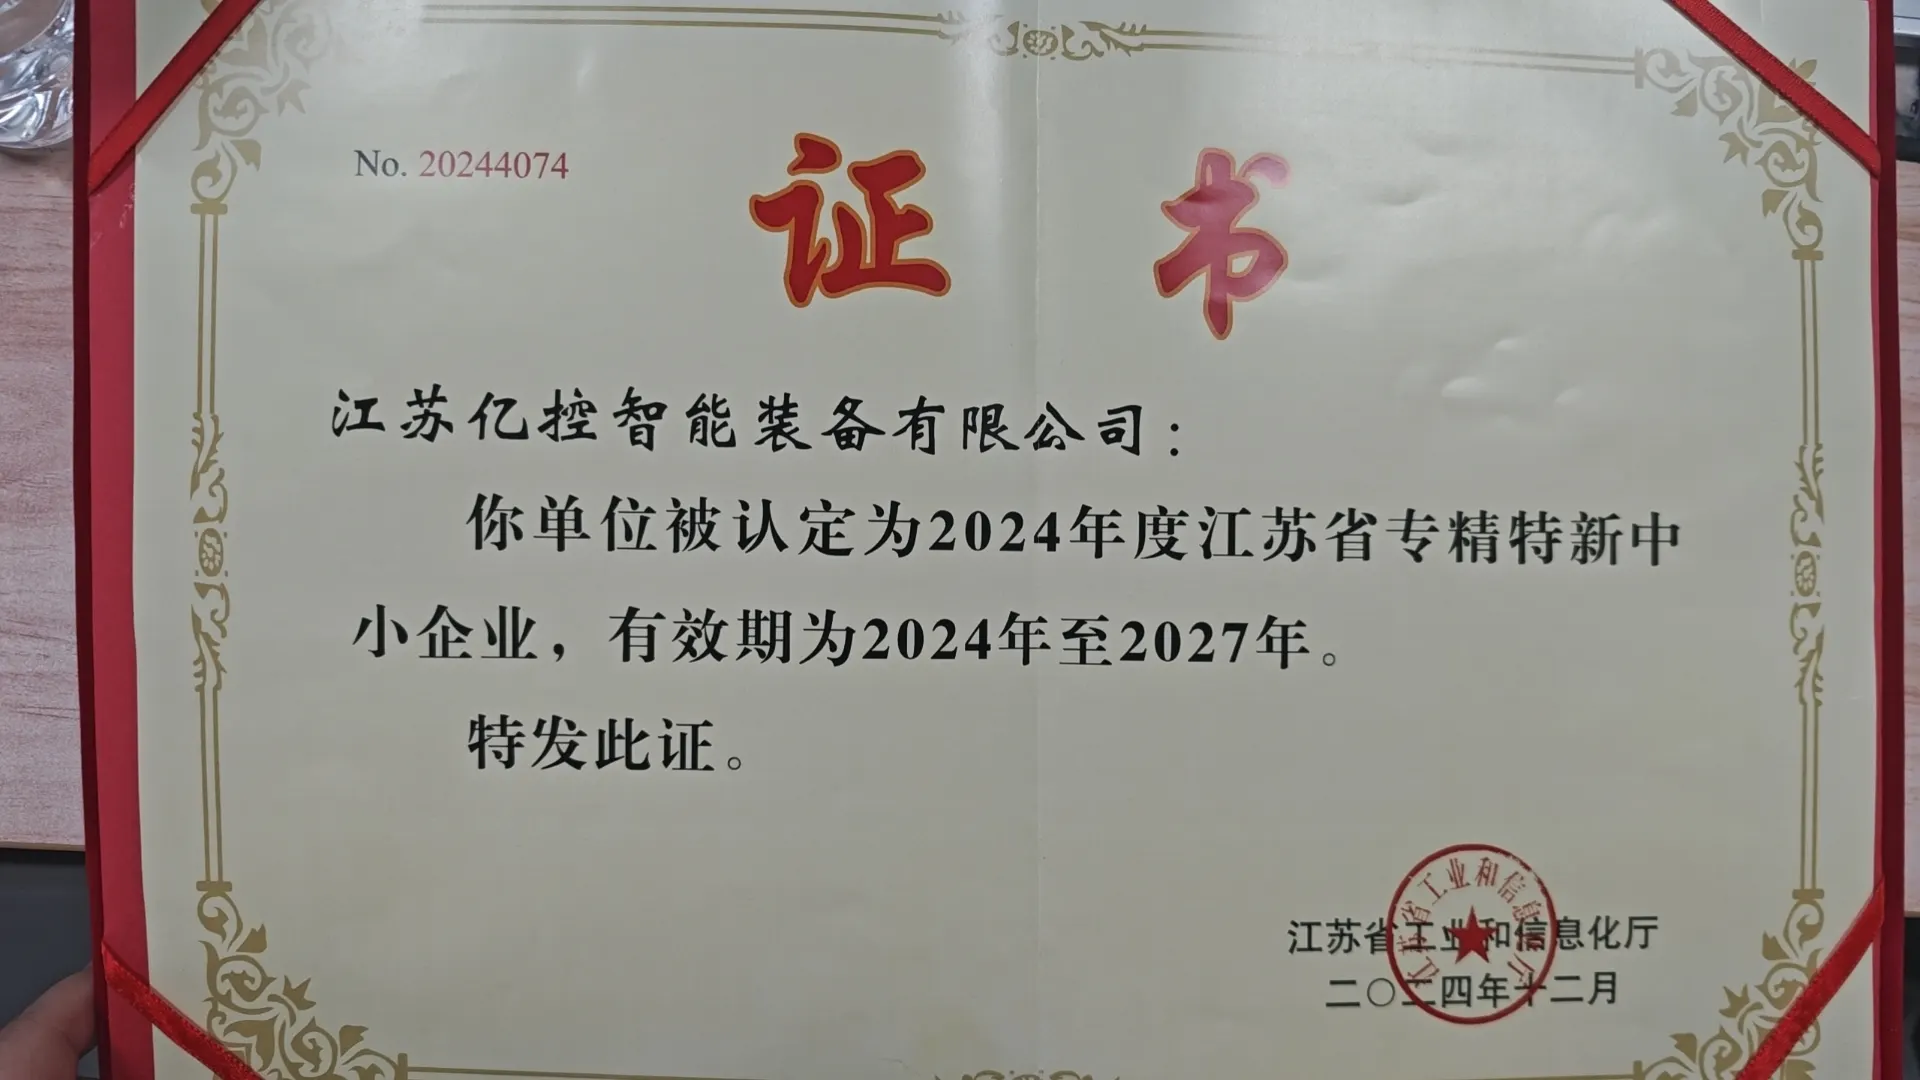 No. 20244074
证书
江苏亿控智能装备有限公司：
你单位被认定为2024年度江苏省专精特新中
小企业，有效期为2024年至2027年。
特发此证。
江苏省工业和信息化厅
江苏省工业和信息化厅
二〇二四年十二月